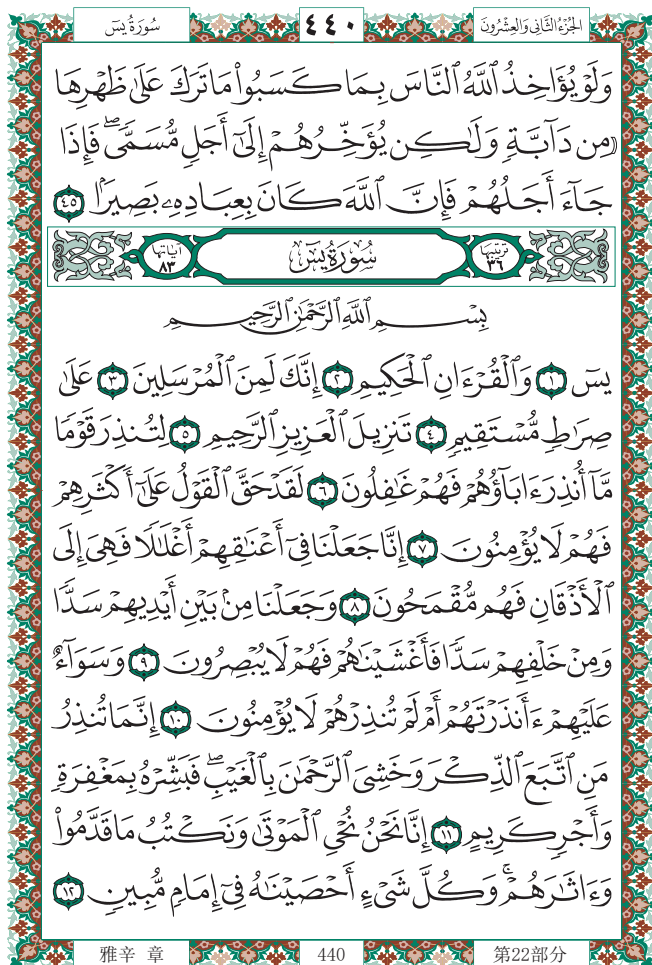 الجُزْءُ الثَّانِي وَالعِشْرُونَ ٤٤٠ سُورَةُ يسٓ
وَلَوْ يُؤَاخِذُ ٱللَّهُ ٱلنَّاسَ بِمَا كَسَبُوا۟ مَا تَرَكَ عَلَىٰ ظَهْرِهَا
مِن دَآبَّةٍ وَلَٰكِن يُؤَخِّرُهُمْ إِلَىٰٓ أَجَلٍ مُّسَمًّى ۖ فَإِذَا
جَآءَ أَجَلُهُمْ فَإِنَّ ٱللَّهَ كَانَ بِعِبَادِهِۦ بَصِيرًۢا ٤٥
ترتيبها ٣٦ سُورَةُ يسٓ آياتها ٨٣
بِسْمِ ٱللَّهِ ٱلرَّحْمَٰنِ ٱلرَّحِيمِ
يسٓ ١ وَٱلْقُرْءَانِ ٱلْحَكِيمِ ٢ إِنَّكَ لَمِنَ ٱلْمُرْسَلِينَ ٣ عَلَىٰ
صِرَٰطٍ مُّسْتَقِيمٍ ٤ تَنزِيلَ ٱلْعَزِيزِ ٱلرَّحِيمِ ٥ لِتُنذِرَ قَوْمًا
مَّآ أُنذِرَ ءَابَآؤُهُمْ فَهُمْ غَٰفِلُونَ ٦ لَقَدْ حَقَّ ٱلْقَوْلُ عَلَىٰٓ أَكْثَرِهِمْ
فَهُمْ لَا يُؤْمِنُونَ ٧ إِنَّا جَعَلْنَا فِىٓ أَعْنَٰقِهِمْ أَغْلَٰلًا فَهِىَ إِلَى
ٱلْأَذْقَانِ فَهُم مُّقْمَحُونَ ٨ وَجَعَلْنَا مِنۢ بَيْنِ أَيْدِيهِمْ سَدًّا
وَمِنْ خَلْفِهِمْ سَدًّا فَأَغْشَيْنَٰهُمْ فَهُمْ لَا يُبْصِرُونَ ٩ وَسَوَآءٌ
عَلَيْهِمْ ءَأَنذَرْتَهُمْ أَمْ لَمْ تُنذِرْهُمْ لَا يُؤْمِنُونَ ١٠ إِنَّمَا تُنذِرُ
مَنِ ٱتَّبَعَ ٱلذِّكْرَ وَخَشِىَ ٱلرَّحْمَٰنَ بِٱلْغَيْبِ ۖ فَبَشِّرْهُ بِمَغْفِرَةٍ
وَأَجْرٍ كَرِيمٍ ١١ إِنَّا نَحْنُ نُحْىِ ٱلْمَوْتَىٰ وَنَكْتُبُ مَا قَدَّمُوا۟
وَءَاثَٰرَهُمْ ۚ وَكُلَّ شَىْءٍ أَحْصَيْنَٰهُ فِىٓ إِمَامٍ مُّبِينٍ ١٢
雅辛 章 440 第22部分